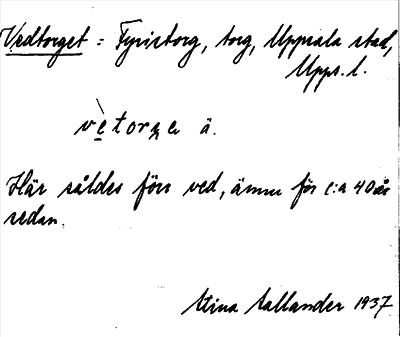 Vedtorget = Fyristorg, torg, Uppsala stad,
Upps. l.
ä.
Här såldes förr ved, ännu för c:a 40 år
sedan.
Stina Sallander 1937